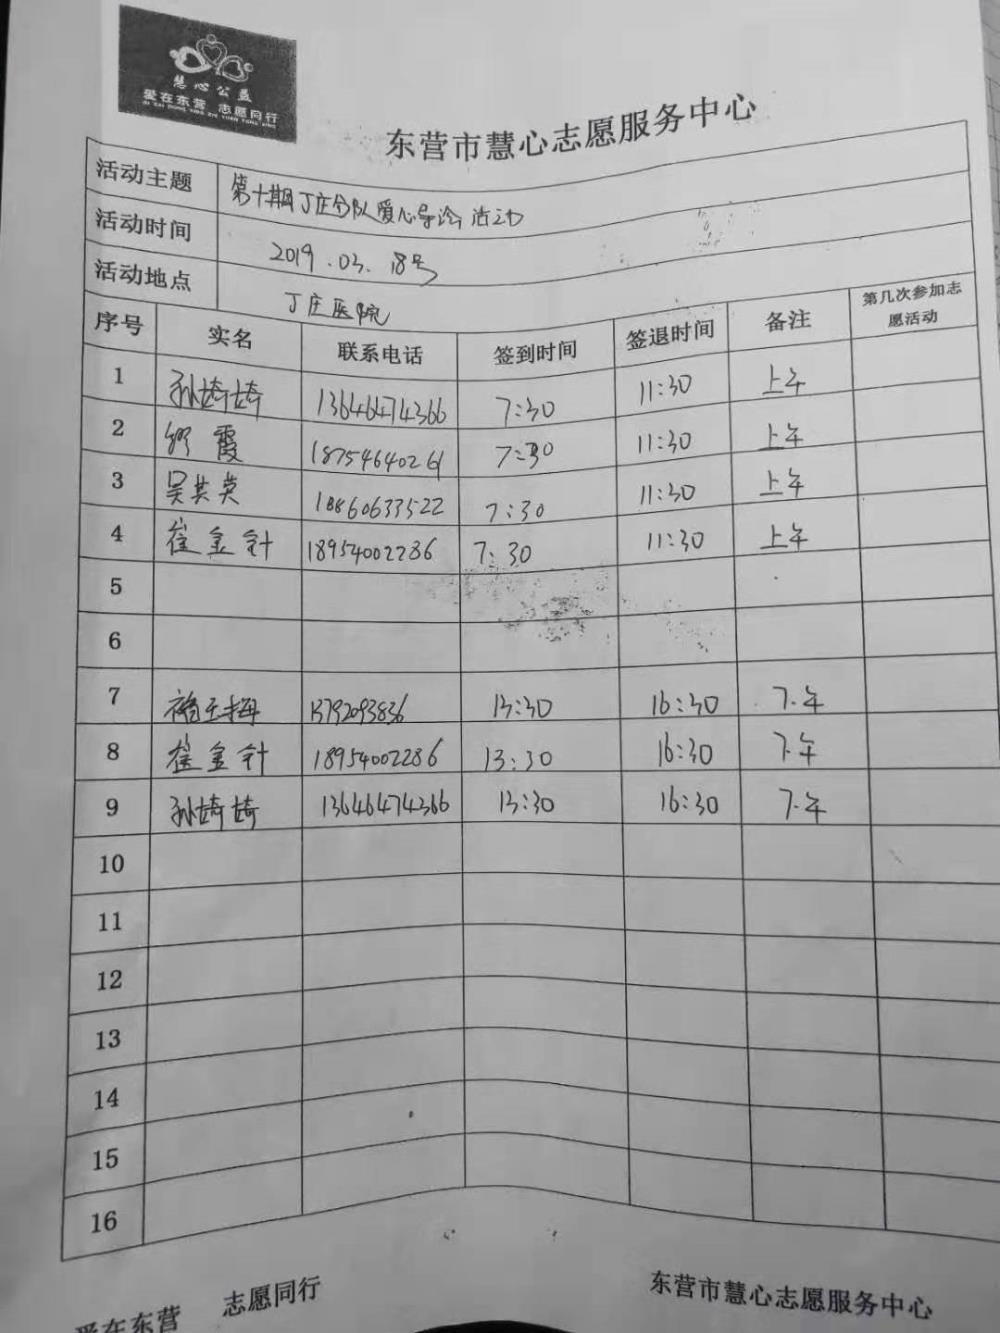 慧心公益
爱在东营 志愿同行
AI ZAI DONG YING ZHI YUAN TONG XING
东营市慧心志愿服务中心
活动主题 第十期丁庄分队爱心导诊活动
活动时间 2019.03.18号
活动地点 丁庄医院
序号 实名 联系电话 签到时间 签退时间 备注 第几次参加志愿活动
1 孙埼埼 13646474366 7:30 11:30 上午
2 霞 18754640261 7:30 11:30 上午
3 吴其英 18860633522 7:30 11:30 上午
4 崔金针 18954002286 7:30 11:30 上午
5
6
7 玉梅 13792093836 13:30 16:30 下午
8 崔金针 18954002286 13:30 16:30 下午
9 孙埼埼 13646474366 13:30 16:30 下午
10
11
12
13
14
15
16
爱在东营 志愿同行 东营市慧心志愿服务中心